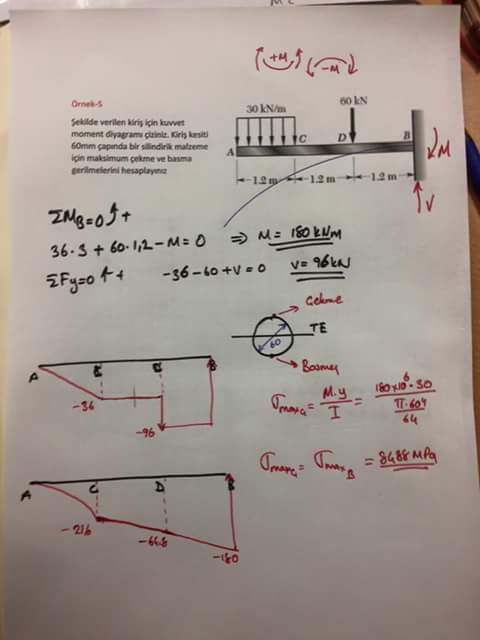 +M
-M
Örnek-5
Şekilde verilen kiriş için kuvvet
moment diyagramı çiziniz. Kiriş kesiti
60mm çapında bir silindirik malzeme
için maksimum çekme ve basma
gerilmelerini hesaplayınız
30 kN/m
60 kN
A
C
D
B
M
1.2 m
1.2 m
1.2 m
V
ΣM_B=0 +
36.3 + 60.1,2 - M = 0 ⇒ M = 180 kNm
ΣFy=0 + -36-60+V=0 V=96kN
Çekme
TE
60
Basma
A
C
D
B
-36
-96
σmaxç = M.y / I = 180x10^6.30 / (π.60^4 / 64)
σmaxç = σmaxB = 8488 MPa
A
C
D
B
-21,6
-64.8
-180